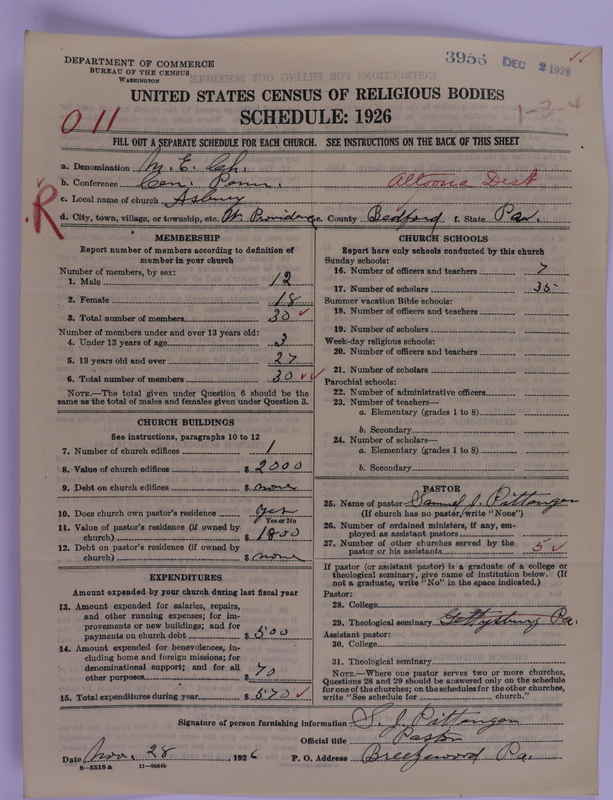 DEPARTMENT OF COMMERCE
BUREAU OF THE CENSUS
WASHINGTON
3955 DEC 2 1926
UNITED STATES CENSUS OF RELIGIOUS BODIES
SCHEDULE: 1926
1-3-4
011
FILL OUT A SEPARATE SCHEDULE FOR EACH CHURCH. SEE INSTRUCTIONS ON THE BACK OF THIS SHEET
a. Denomination M. E. Ch.
b. Conference Cen. Penn. Altoona Dist
R
c. Local name of church Asbury
d. City, town, village, or township, etc. W. Providence e. County Bedford f. State Pa.
MEMBERSHIP
Report number of members according to definition of
member in your church
Number of members, by sex:
1. Male 12
2. Female 18
3. Total number of members 30
Number of members under and over 13 years old:
4. Under 13 years of age 3
5. 13 years old and over 27
6. Total number of members 30
NOTE.—The total given under Question 6 should be
same as the total of males and females given under Question 3.
CHURCH BUILDINGS
See instructions, paragraphs 10 to 12
7. Number of church edifices 1
8. Value of church edifices $ 2000
9. Debt on church edifices $ none
10. Does church own pastor's residence yes
Yes or No
11. Value of pastor's residence (if owned by
church) $ 1800
12. Debt on pastor's residence (if owned by
church) $ none
EXPENDITURES
Amount expended by your church during last fiscal year
13. Amount expended for salaries, repairs,
and other running expenses; for im-
provements or new buildings; and for
payments on church debt $ 500
14. Amount expended for benevolences, in-
cluding home and foreign missions; for
denominational support; and for all
other purposes $ 70
15. Total expenditures during year $ 570
CHURCH SCHOOLS
Report here only schools conducted by this church
Sunday schools:
16. Number of officers and teachers 7
17. Number of scholars 35
Summer vacation Bible schools:
18. Number of officers and teachers
19. Number of scholars
Week-day religious schools:
20. Number of officers and teachers
21. Number of scholars
Parochial schools:
22. Number of administrative officers
23. Number of teachers—
a. Elementary (grades 1 to 8)
b. Secondary
24. Number of scholars—
a. Elementary (grades 1 to 8)
b. Secondary
PASTOR
25. Name of pastor Samuel J. Pittenger
(If church has no pastor, write "None")
26. Number of ordained ministers, if any, em-
ployed as assistant pastors
27. Number of other churches served by the
pastor or his assistants 5
If pastor (or assistant pastor) is a graduate of a college or
theological seminary, give name of institution below. (If
not a graduate, write "No" in the space indicated.)
Pastor:
28. College
29. Theological seminary Gettysburg Pa.
Assistant pastor:
30. College
31. Theological seminary
NOTE.—Where one pastor serves two or more churches,
Questions 28 and 29 should be answered only on the schedule
for one of the churches; on the schedules for the other churches,
write "See schedule for church."
Signature of person furnishing information S. J. Pittenger
Official title Pastor
Date Nov. 28, 1926 P. O. Address Breezewood Pa.
8—5518 a